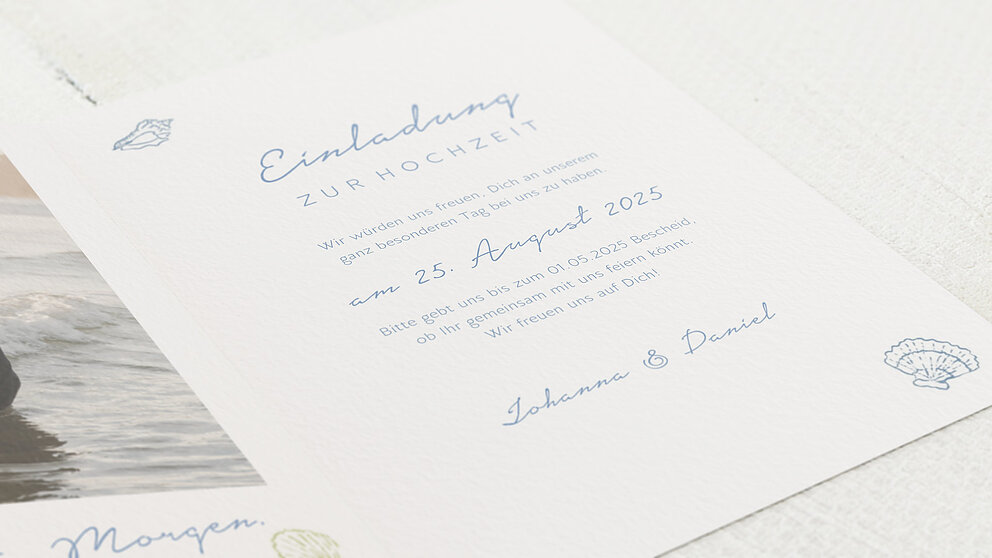 Einladung
ZUR HOCHZEIT
Wir würden uns freuen, Dich an unserem
ganz besonderen Tag bei uns zu haben.
am 25. August 2025
Bitte gebt uns bis zum 01.05.2025 Bescheid,
ob Ihr gemeinsam mit uns feiern könnt.
Wir freuen uns auf Dich!
Johanna & Daniel
Morgen.